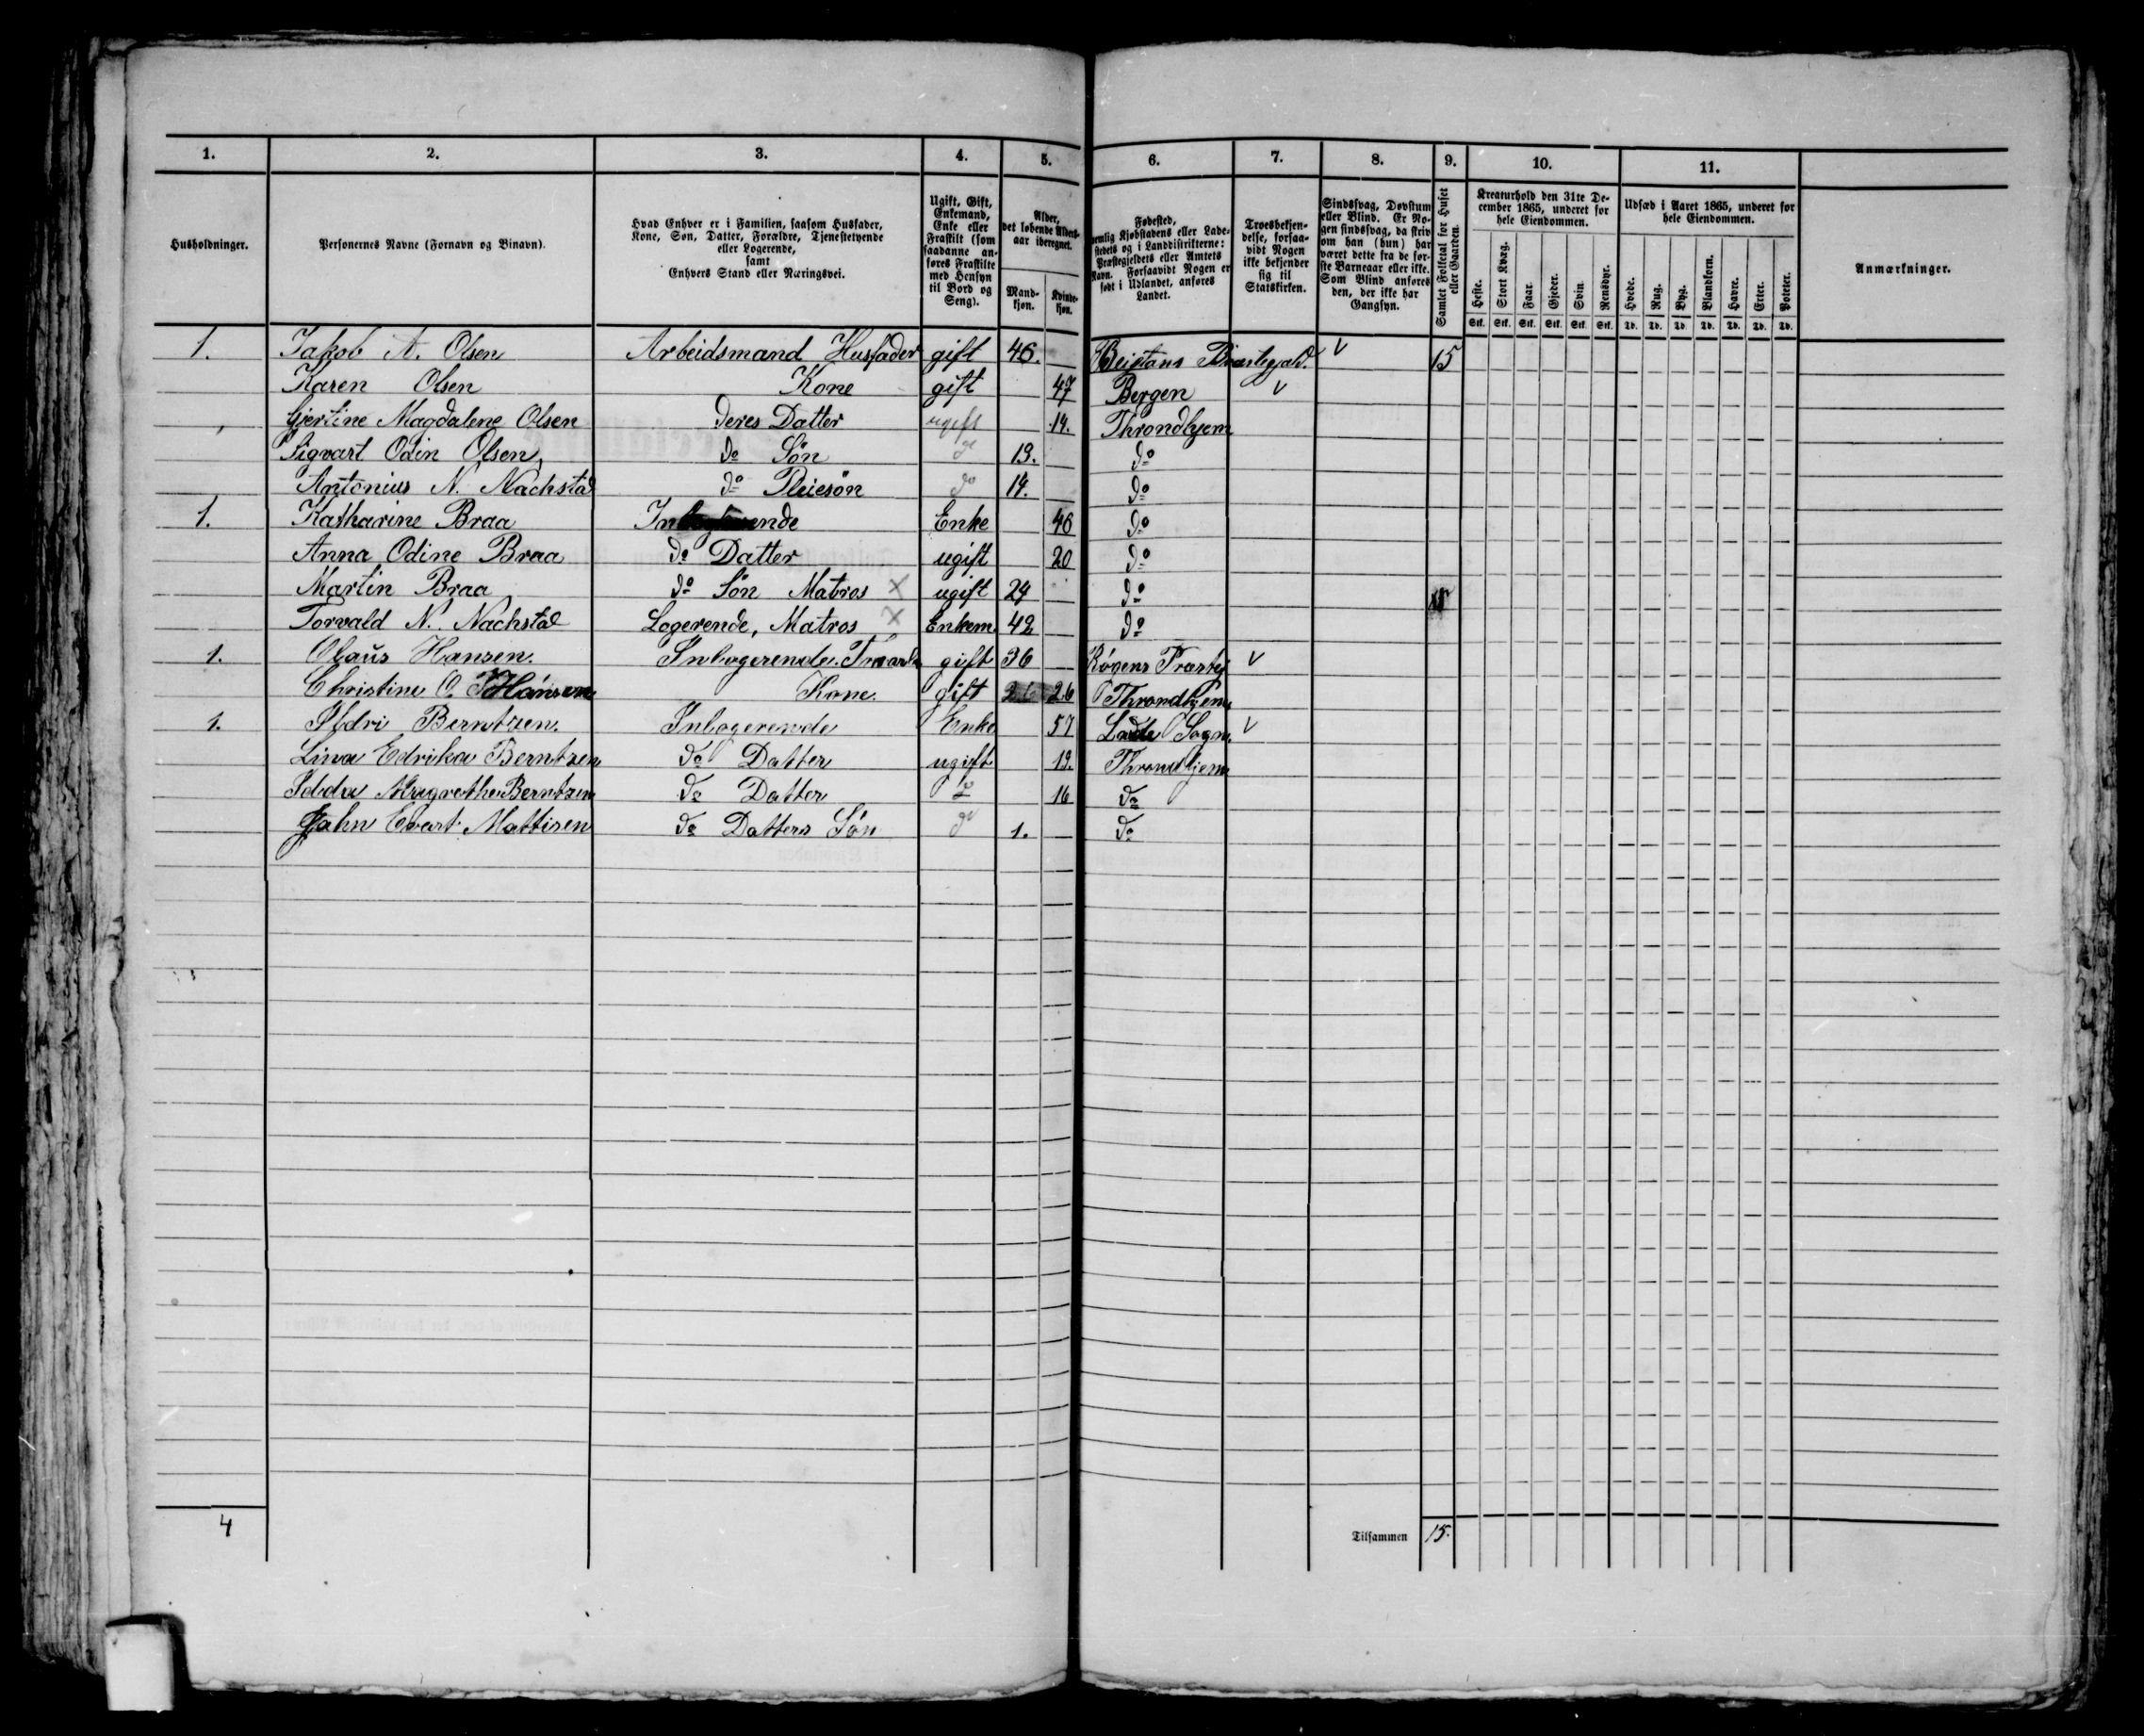 1. 2. 3. 4. 5. 6. 7. 8. 9. 10. 11.
Husholdninger.
Personernes Navne (Fornavn og Binavn).
Hvad Enhver er i Familien, saasom Husfader,
Kone, Søn, Datter, Forældre, Tjenestetyende
eller Logerende,
samt
Enhvers Stand eller Næringsvei.
Ugift, Gift,
Enkemand,
Enke eller
Fraskilt (som
saadanne an-
føres Fraskilte
med Hensyn
til Bord og
Seng).
Alder,
det løbende Alders-
aar iberegnet.
Mand-
kjøn.
Kvinde-
kjøn.
Fødested,
nemlig Kjøbstadens eller Lade-
stedets og i Landdistrikterne:
Præstegjeldets eller Amtets
Navn. Forsaavidt Nogen er
født i Udlandet, anføres
Landet.
Troesbekjen-
delse, forsaa-
vidt Nogen
ikke bekjender
sig til
Statskirken.
Sindssvag, Døvstum
eller Blind. Er No-
gen sindssvag, da skriv
om han (hun) har
været dette fra de før-
ste Barneaar eller ikke.
Som Blind anføres
den, der ikke har
Gangsyn.
Samlet Folketal for Huset
eller Gaarden.
Kreaturhold den 31te De-
cember 1865, underet for
hele Eiendommen.
Heste. Stort Kvæg. Faar. Gjeder. Svin. Rensdyr.
Stk. Stk. Stk. Stk. Stk. Stk.
Udsæd i Aaret 1865, underet for
hele Eiendommen.
Hvede. Rug. Byg. Blandkorn. Havre. Erter. Poteter.
Td. Td. Td. Td. Td. Td. Td.
Anmærkninger.
1. Jakob A. Olsen Arbeidsmand Husfader gift 46. Beistans Præstegjæld. V 15
Karen Olsen Kone gift 47 Bergen V
Gjertine Magdalene Olsen deres Datter ugift 14. Throndhjem
Sigvart Odin Olsen do Søn do 13. do
Antonius N. Nachstad do Pleiesøn do 14. do
1. Katharine Braa Enke 46 do
Anna Odine Braa do Datter ugift 20 do
Martin Braa do Søn Matros X ugift 24 do
Torvald N. Nachstad Logerende, Matros X Enkem 42 do
1. Olaus Hansen. Inlogerende. gift 36 V
Christine O. Hansen Kone. gift 26 26 Throndhjem
1. Berntzen. Inlogerende Enke 57 Lade Sogn. V
Lina Edrika Berntzen do Datter ugift 19. Throndhjem
Magrethe Berntzen do Datter do 16 do
Jahn Evart Mattisen do Datters Søn do 1. do
4 Tilsammen 15.